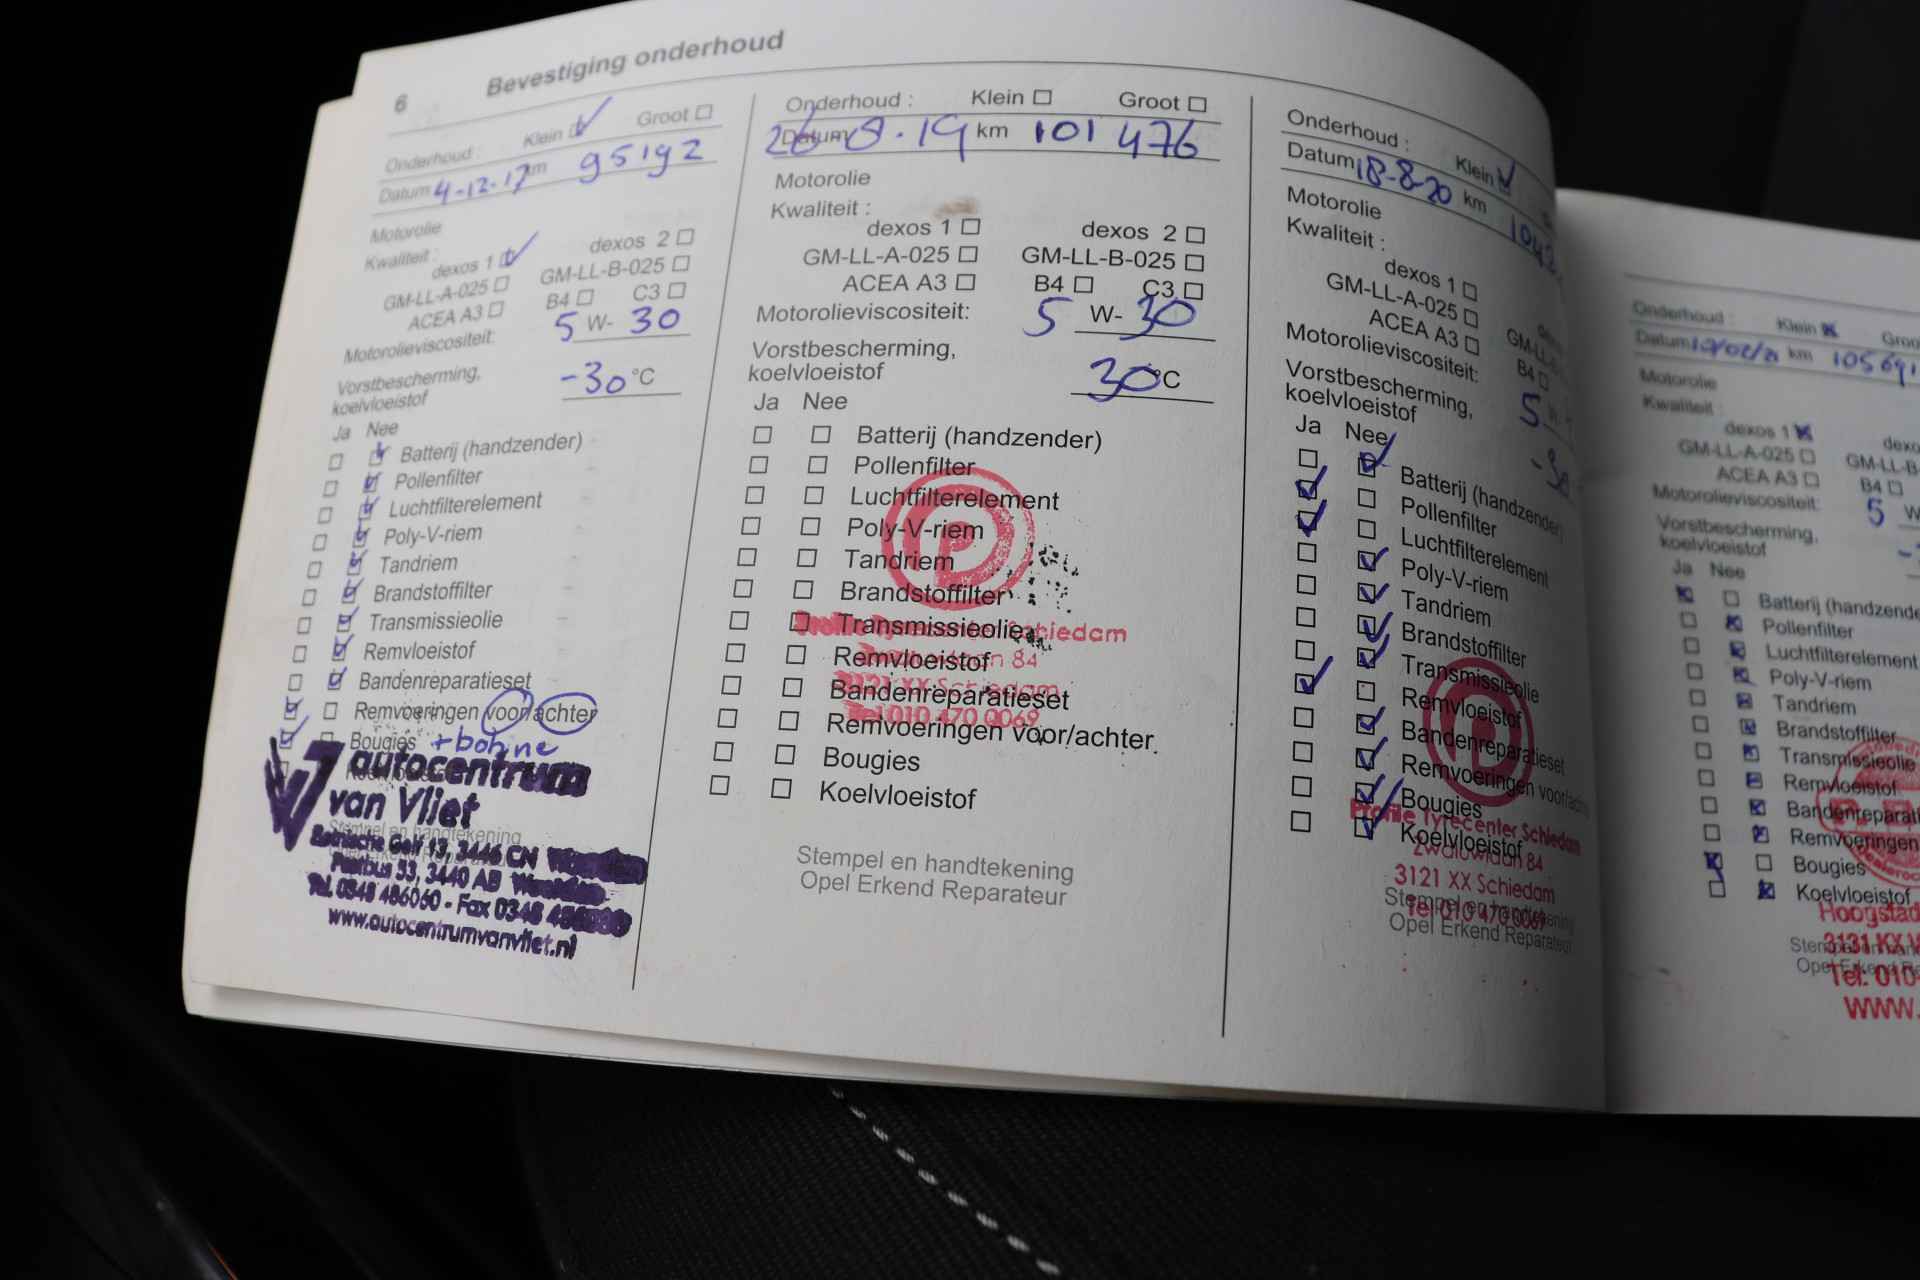 6 Bevestiging onderhoud
Onderhoud : Klein Groot
Datum 4-12-17 km 95192
Motorolie
Kwaliteit :
dexos 1 dexos 2
GM-LL-A-025 GM-LL-B-025
ACEA A3 B4 C3
Motorolieviscositeit: 5 W- 30
Vorstbescherming,
koelvloeistof -30 °C
Ja Nee
Batterij (handzender)
Pollenfilter
Luchtfilterelement
Poly-V-riem
Tandriem
Brandstoffilter
Transmissieolie
Remvloeistof
Bandenreparatieset
Remvoeringen voor/achter
Bougies + bobine
autocentrum
van Vliet
Stempel en handtekening
13, 3446 CN
Postbus 33, 3440 AB
Tel. 0348 486060 - Fax 0348
www.autocentrumvanvliet.nl
Onderhoud : Klein Groot
Datum 26-8-19 km 101 476
Motorolie
Kwaliteit :
dexos 1 dexos 2
GM-LL-A-025 GM-LL-B-025
ACEA A3 B4 C3
Motorolieviscositeit: 5 W- 30
Vorstbescherming,
koelvloeistof 30 °C
Ja Nee
Batterij (handzender)
Pollenfilter
Luchtfilterelement
Poly-V-riem
Tandriem
Brandstoffilter
Transmissieolie
Schiedam
Remvloeistof
84
Bandenreparatieset
3121 XX Schiedam
Tel 010 470 0069
Remvoeringen voor/achter
Bougies
Koelvloeistof
Stempel en handtekening
Opel Erkend Reparateur
Onderhoud : Klein
Datum 18-8-20 km
Motorolie
Kwaliteit :
dexos 1
GM-LL-A-025
ACEA A3 B4
Motorolieviscositeit: 5 W-
Vorstbescherming,
koelvloeistof -30
Ja Nee
Batterij (handzender)
Pollenfilter
Luchtfilterelement
Poly-V-riem
Tandriem
Brandstoffilter
Transmissieolie
Remvloeistof
Bandenreparatieset
Remvoeringen voor/achter
Bougies
Profile Tyrecenter Schiedam
Koelvloeistof
Zwaluwlaan 84
3121 XX Schiedam
Stempel en handtekening
Tel 010 470 0069
Opel Erkend Reparateur
Onderhoud : Klein Groo
Datum km 105691
Motorolie
Kwaliteit :
dexos 1 dexo
GM-LL-A-025 GM-LL-B
ACEA A3 B4
Motorolieviscositeit: 5 W
Vorstbescherming,
koelvloeistof
Ja Nee
Batterij (handzende
Pollenfilter
Luchtfilterelement
Poly-V-riem
Tandriem
Brandstoffilter
Transmissieolie
Remvloeistof
Bandenreparati
Remvoeringen
Bougies
Koelvloeistof
Hoogstad
3131 KX V
Tel: 010-
WWW.